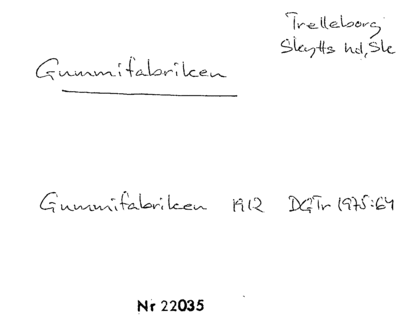 Trelleborg
Skytts hd, Sk
Gummifabriken
Gummifabriken 1912 DGTr 1975:64
Nr 22035